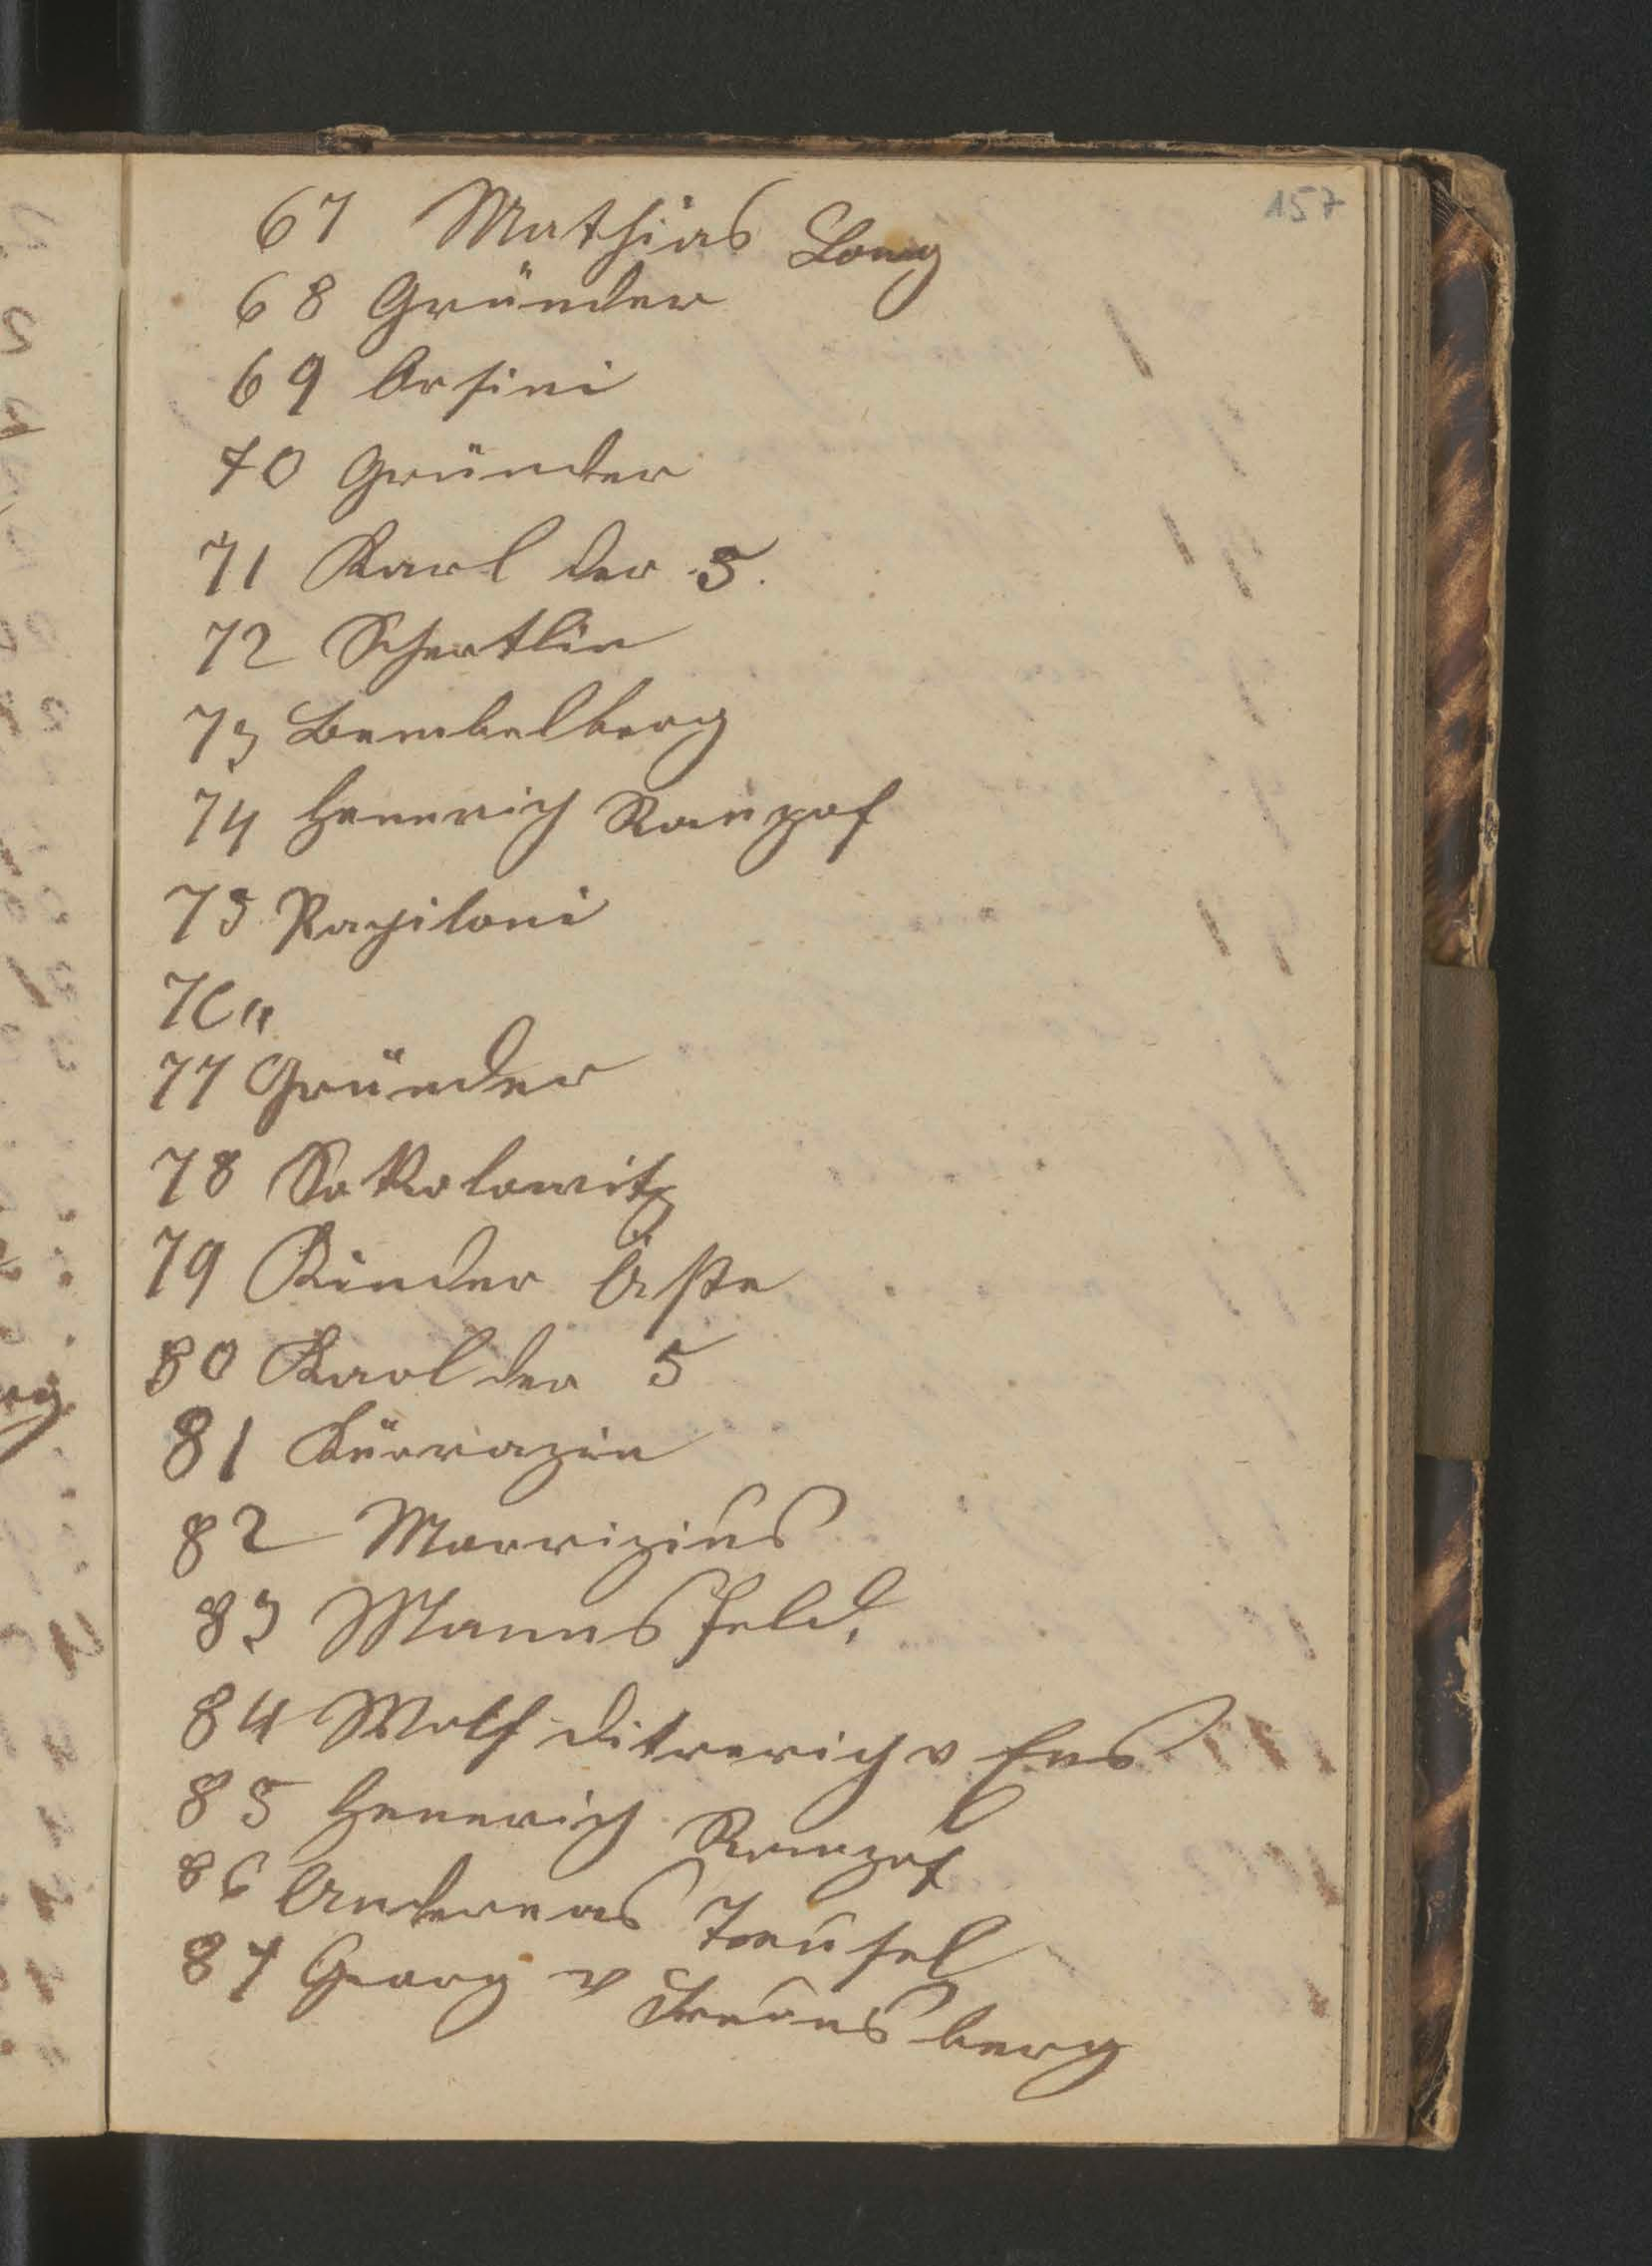 157
67 Mathias Lang
68 Gründer
69 Orsini
70 Gründer
71 Karl der 5.
72 Schertlin
73 Bembelberg
74 Hennrich Ranzof
75 Papiloni
76 "
77 Gründer
78 Sokolowitz
79 Kinder Äste
80 Karl der 5
81 Kürrazin
82 Morrizius
83 Mannsfeld.
84 Wolf ditrerich v Ems
85 Hennrich Ranzof
86 Andereas Teufel
87 Georg v Freunsberg